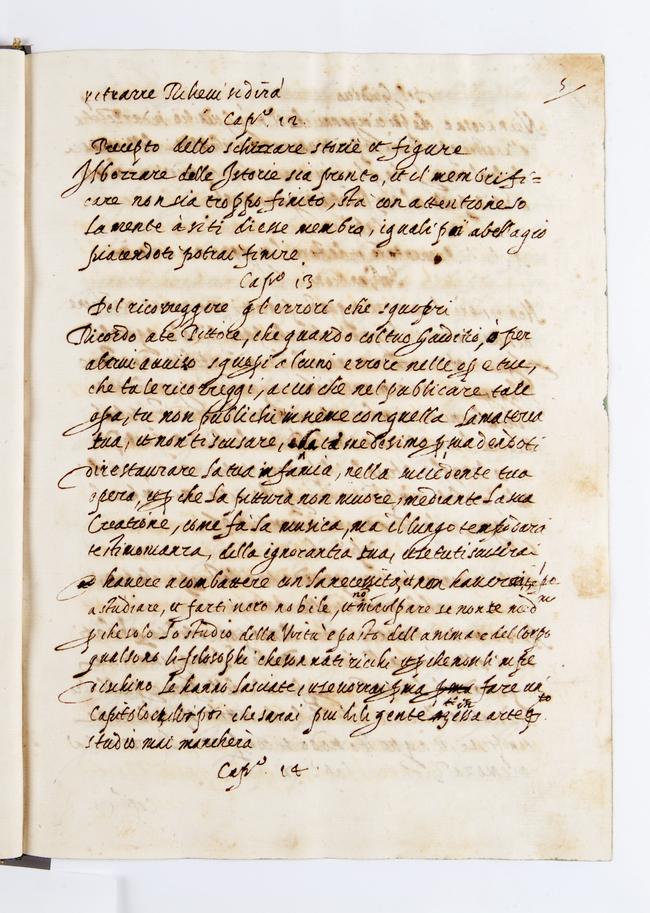 5
ritrarre Rilievi si dirà
Cap.º 12.
Precepto dello schizzare storie et figure
Il bozzare delle Istorie sia pronto, et il membrifi=
care non sia troppo finito, sta con attentione so
lamente à siti di esse membra, i quali poi a bell agio
piacendoti potrai finire.
Cap.º 13
Del ricorreggere gl errori che scuopri
Ricordo a te Pittore, che quando col tuo Giuditio, o per
altrui avviso scuopri alcuno errore nelle op.e tue,
che tu le ricorreggi, acciò che nel publicare tale
opa, tu non publichi insieme con quella la materia
tua, et non ti scusare, da te medesimo
di restaurare la tua infamia, nella succedente tua
opera, che la pittura non muore, mediante la sua
Creatione, come fà la musica, ma il lungo tempo darà
testimonianza, della ignorantia tua, et se tu ti scuserai
havere a combattere con la necessità, et non havere
a studiare, et farti vero nobile, et non incolpare se non te med
che solo lo studio della Virtù è pasto dell anima e del Corpo
quali sono li filosophi che son nati ricchi che non li
le hanno lasciate, et se vorrai fare un
Capitolo che sarai più diligente arte
studio mai mancherà
Cap.º 14.